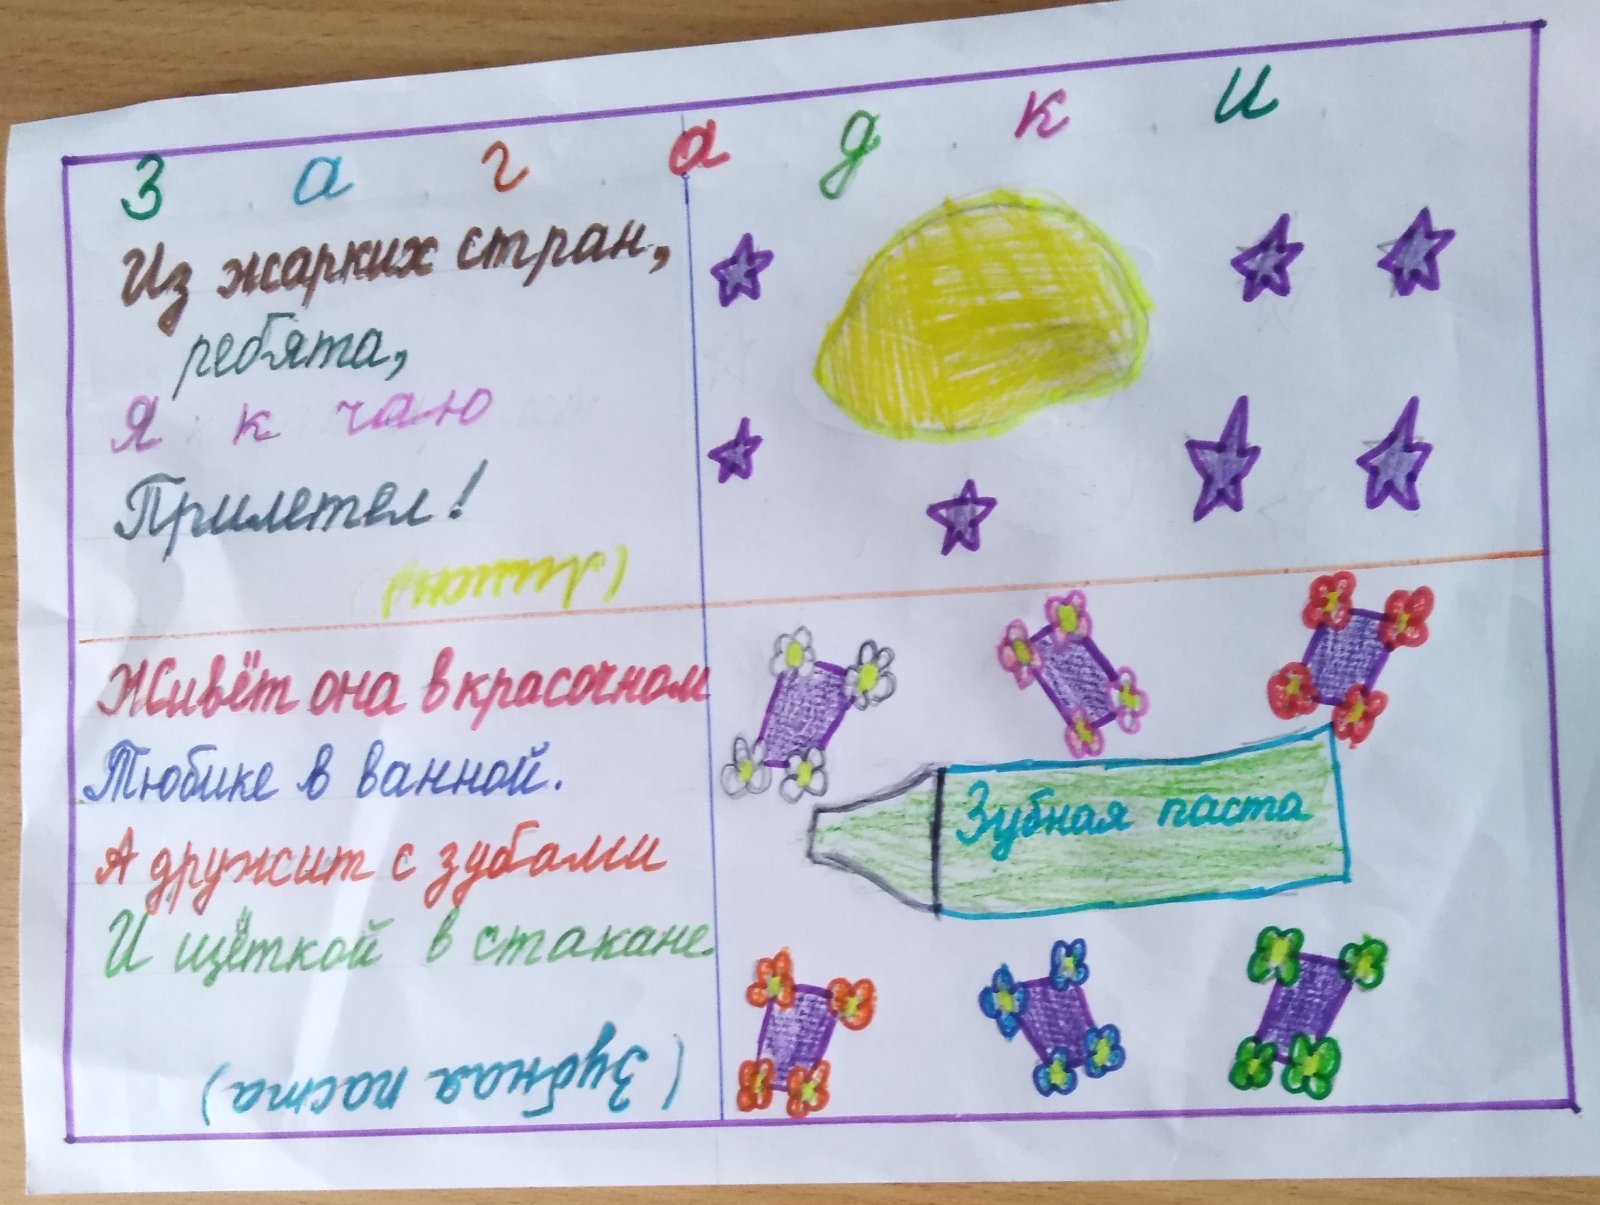 Загадки
Из жарких стран,
ребята,
Я к чаю
Прилетел!
(Лимон)
Живёт она в красочном
Тюбике в ванной.
А дружит с зубами
И щёткой в стакане.
(Зубная паста)
Зубная паста